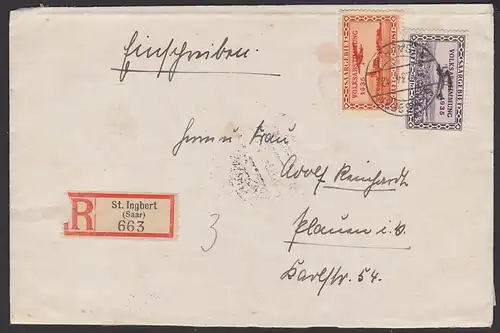 Einschreiben.
SAARGEBIET
VOLKSABSTIMMUNG
1935
SAARGEBIET
VOLKSABSTIMMUNG
1935
Herrn u Frau
Adolf Reinhardt
Plauen i. V.
Karlstr. 54.
R
St. Ingbert
(Saar)
663
3